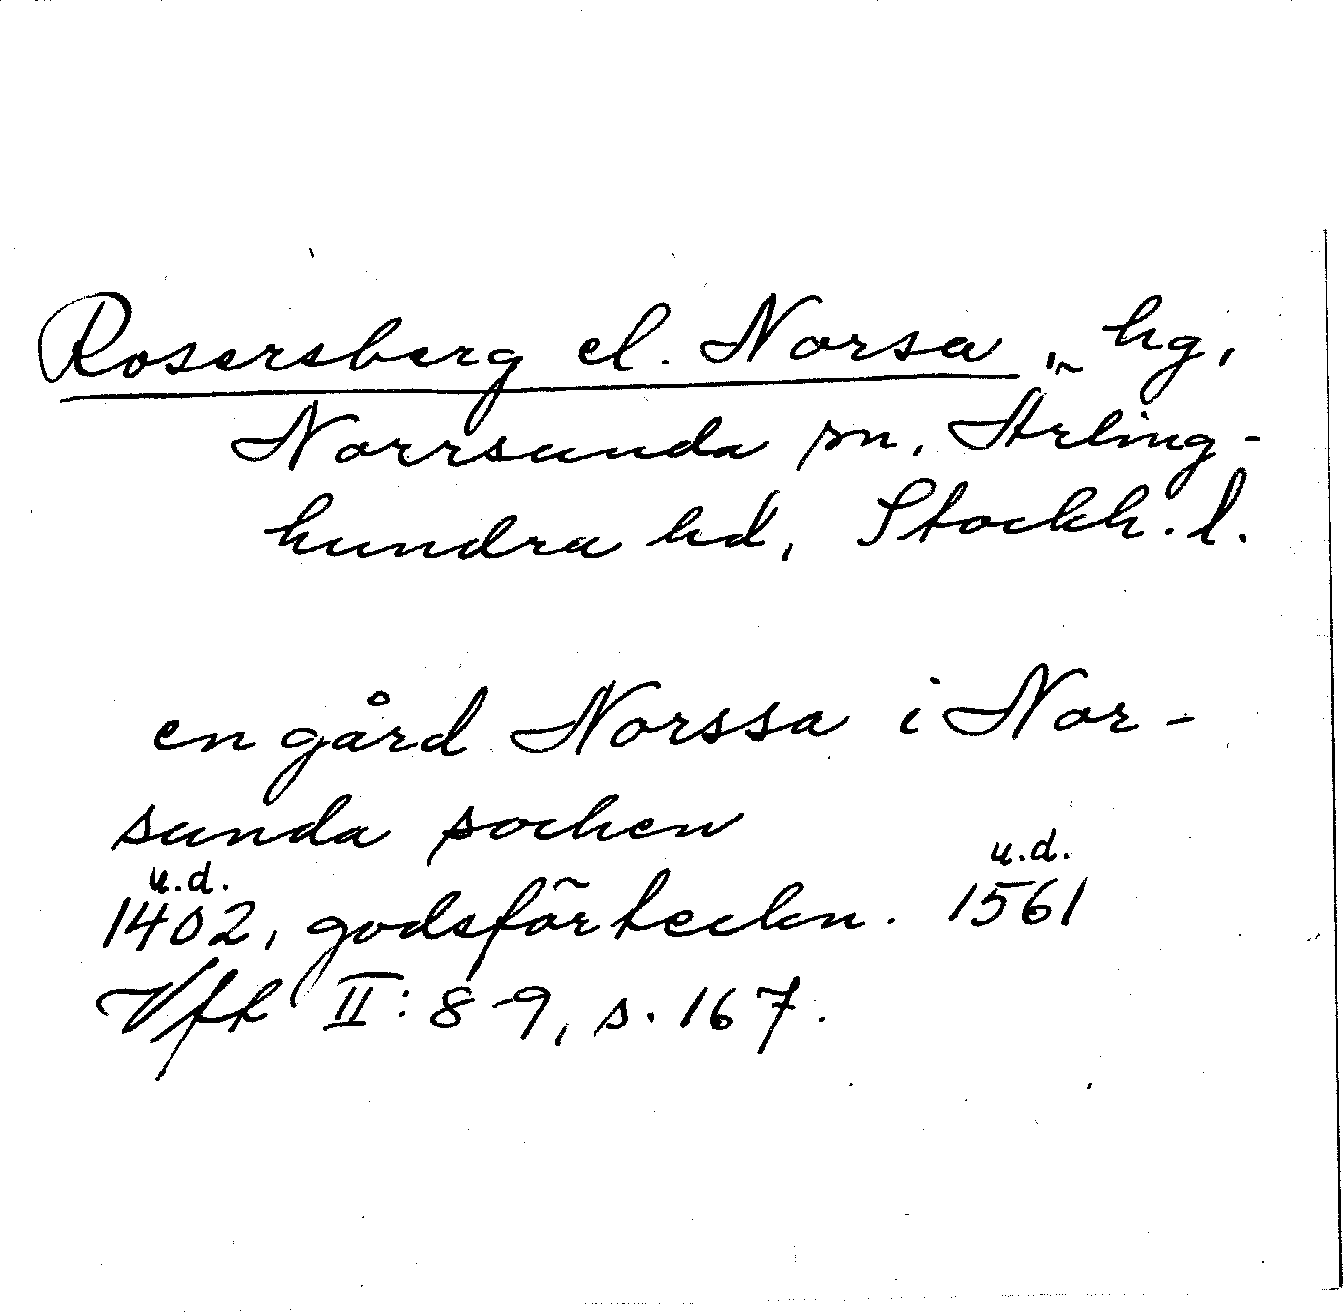 Rosersberg el. Norsa, hg,
Norrsunda sn, Ärling-
hundra hd, Stockh. l.
en gård Norssa i Nor-
sunda socken
u.d. u.d.
1402, godsförteckn. 1561
Vft II: 8-9, s. 167.